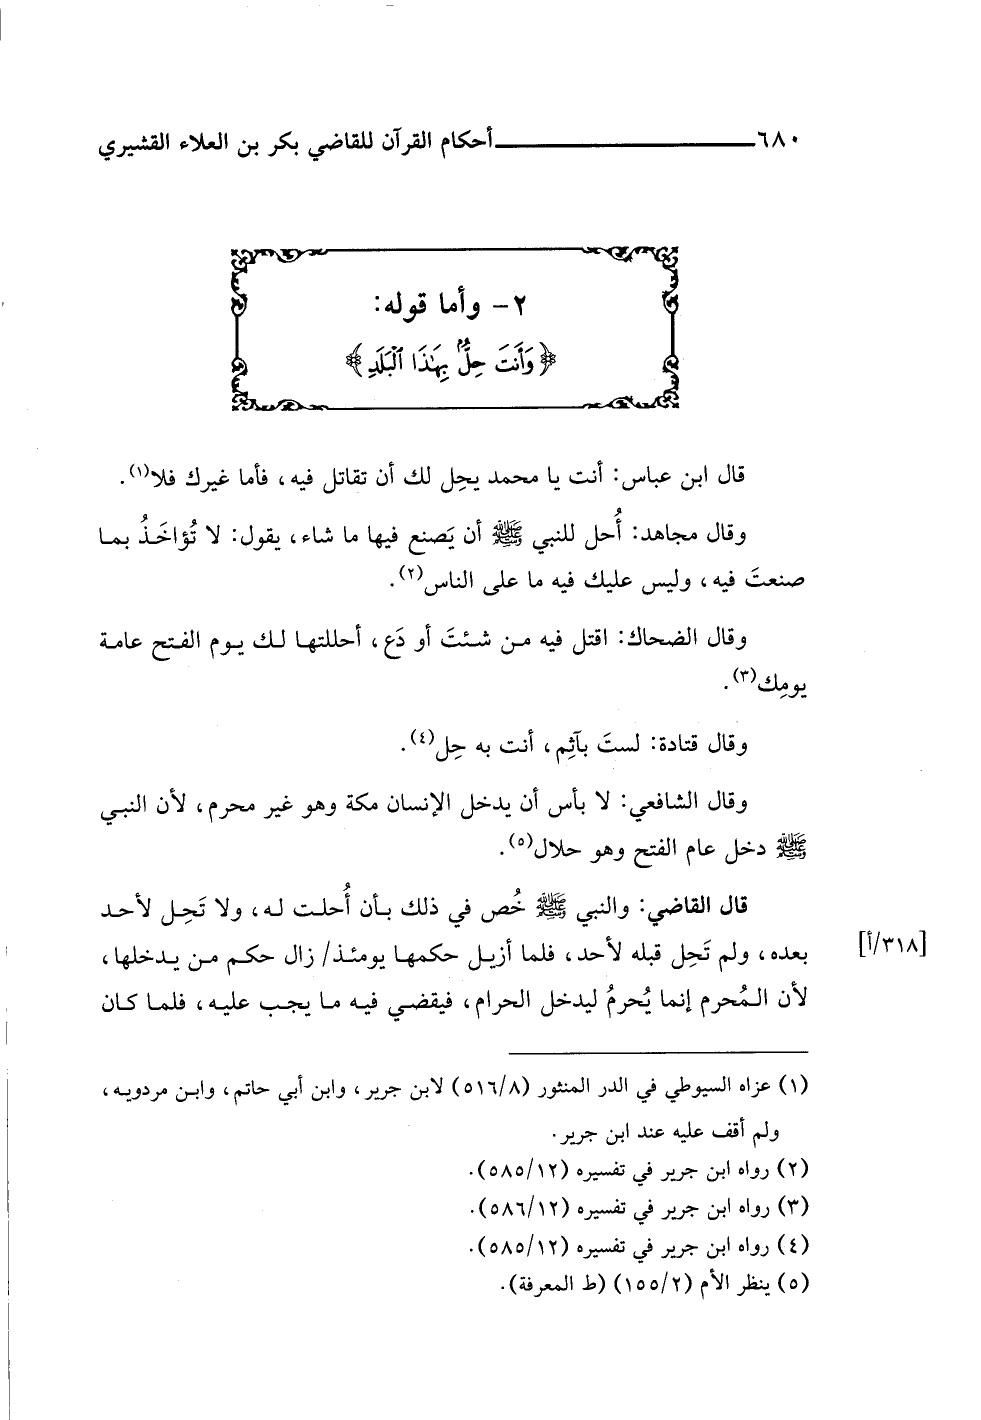 ٦٨٠ أحكام القرآن للقاضي بكر بن العلاء القشيري
٢- وأما قوله:
﴿وَأَنتَ حِلٌّۢ بِهَٰذَا ٱلْبَلَدِ﴾
قال ابن عباس: أنت يا محمد يحِل لك أن تقاتل فيه، فأما غيرك فلا(١).
وقال مجاهد: أُحل للنبي ﷺ أن يَصنع فيها ما شاء، يقول: لا تُؤاخَذُ بما
صنعتَ فيه، وليس عليك فيه ما على الناس(٢).
وقال الضحاك: اقتل فيه من شئتَ أو دَع، أحللتها لك يوم الفتح عامة
يومِك(٣).
وقال قتادة: لستَ بآثِم، أنت به حِل(٤).
وقال الشافعي: لا بأس أن يدخل الإنسان مكة وهو غير محرم، لأن النبي
ﷺ دخل عام الفتح وهو حلال(٥).
قال القاضي: والنبي ﷺ خُص في ذلك بأن أُحلت له، ولا تَحِل لأحد
بعده، ولم تَحِل قبله لأحد، فلما أزيل حكمها يومئذ/ زال حكم من يدخلها،
[٣١٨/أ]
لأن المُحرم إنما يُحرمُ ليدخل الحرام، فيقضي فيه ما يجب عليه، فلما كان
(١) عزاه السيوطي في الدر المنثور (٥١٦/٨) لابن جرير، وابن أبي حاتم، وابن مردويه،
ولم أقف عليه عند ابن جرير.
(٢) رواه ابن جرير في تفسيره (٥٨٥/١٢).
(٣) رواه ابن جرير في تفسيره (٥٨٦/١٢).
(٤) رواه ابن جرير في تفسيره (٥٨٥/١٢).
(٥) ينظر الأم (١٥٥/٢) (ط المعرفة).